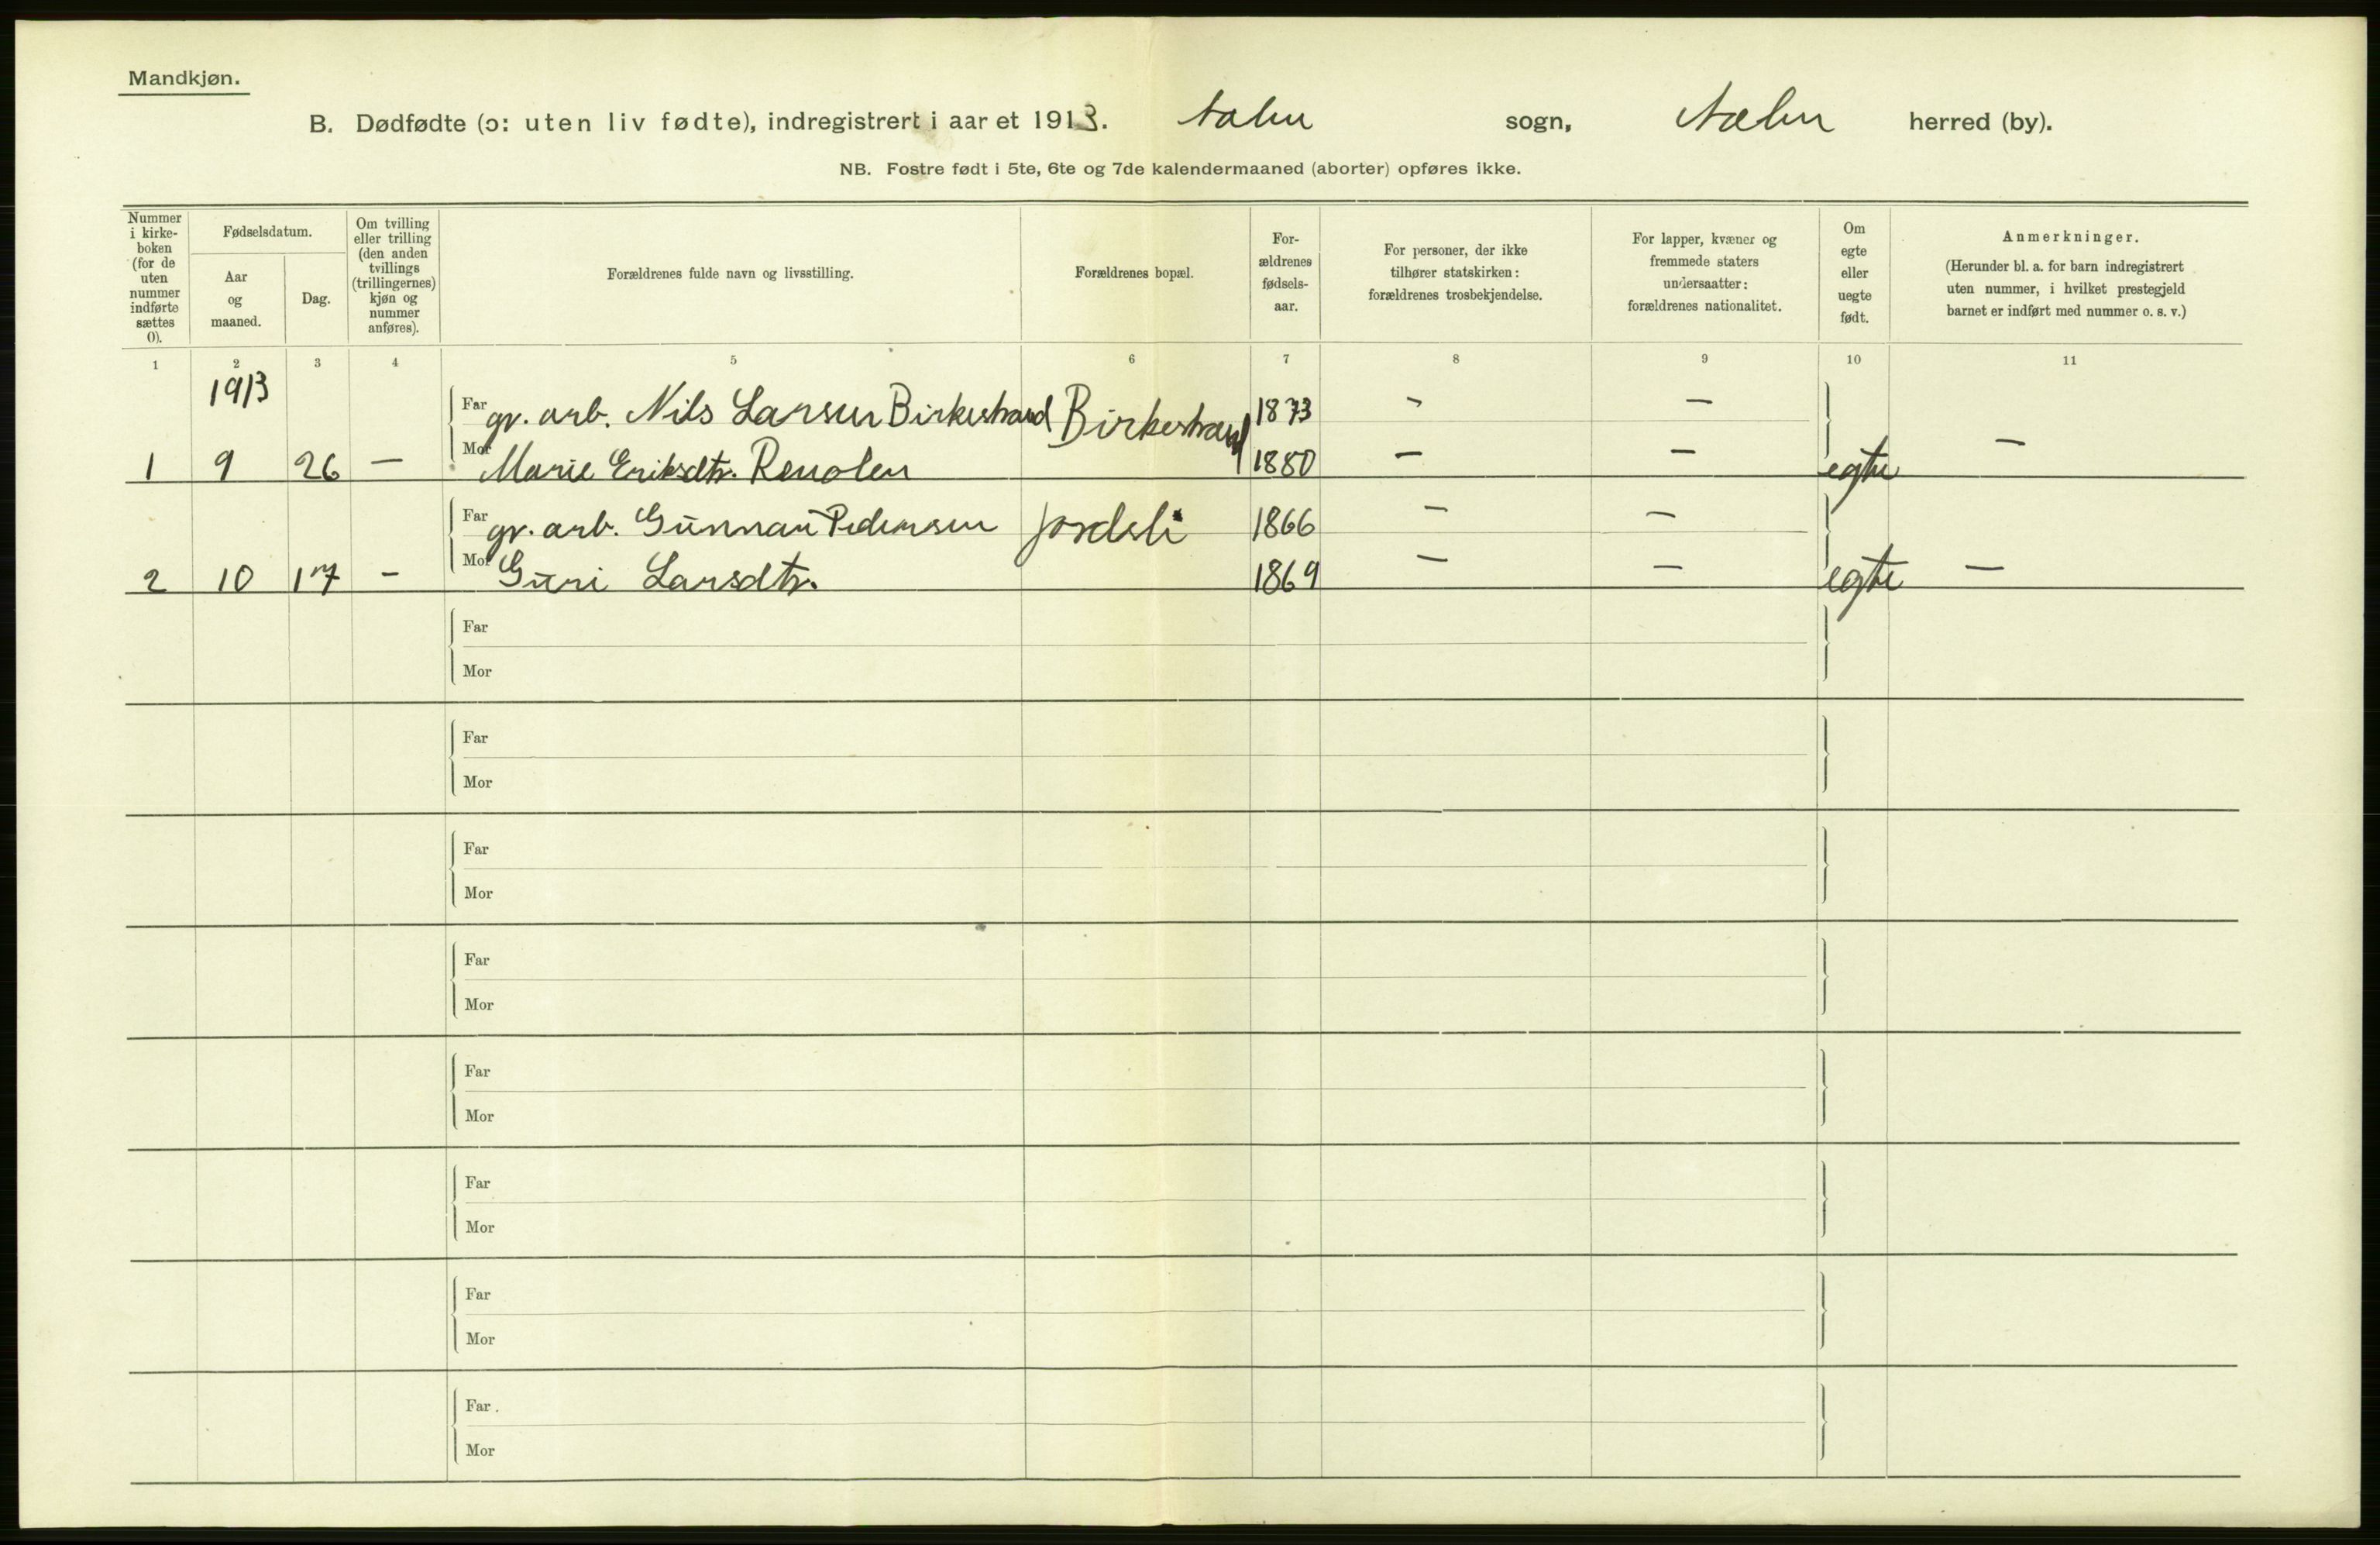 Mandkjøn.
B. Dødfødte (ɔ: uten liv fødte), indregistrert i aaret 1913. sogn, herred (by).
NB. Fostre født i 5te, 6te og 7de kalendermaaned (aborter) opføres ikke.
Nummer i kirke-boken (for de uten nummer indførte sættes 0).
Fødselsdatum.
Aar og maaned.
Dag.
Om tvilling eller trilling (den anden tvillings (trillingernes) kjøn og nummer anføres).
Forældrenes fulde navn og livsstilling.
Forældrenes bopæl.
For-ældrenes fødsels-aar.
For personer, der ikke tilhører statskirken: forældrenes trosbekjendelse.
For lapper, kvæner og fremmede staters undersaatter: forældrenes nationalitet.
Om egte eller uegte født.
Anmerkninger.
(Herunder bl. a. for barn indregistrert uten nummer, i hvilket prestegjeld barnet er indført med nummer o. s. v.)
1 2 3 4 5 6 7 8 9 10 11
1913
Far gr. arb. Nils Larsen Birkestrand Birkestrand 1873 - -
1 9 26 - Mor Marie Eriksdtr. Renolen 1880 - - egte -
Far gr. arb. Gunnar Pedersen Jordsli 1866 - -
2 10 17 - Mor Guri Larsdtr. 1869 - - egte -
Far
Mor
Far
Mor
Far
Mor
Far
Mor
Far
Mor
Far
Mor
Far
Mor
Far .
Mor